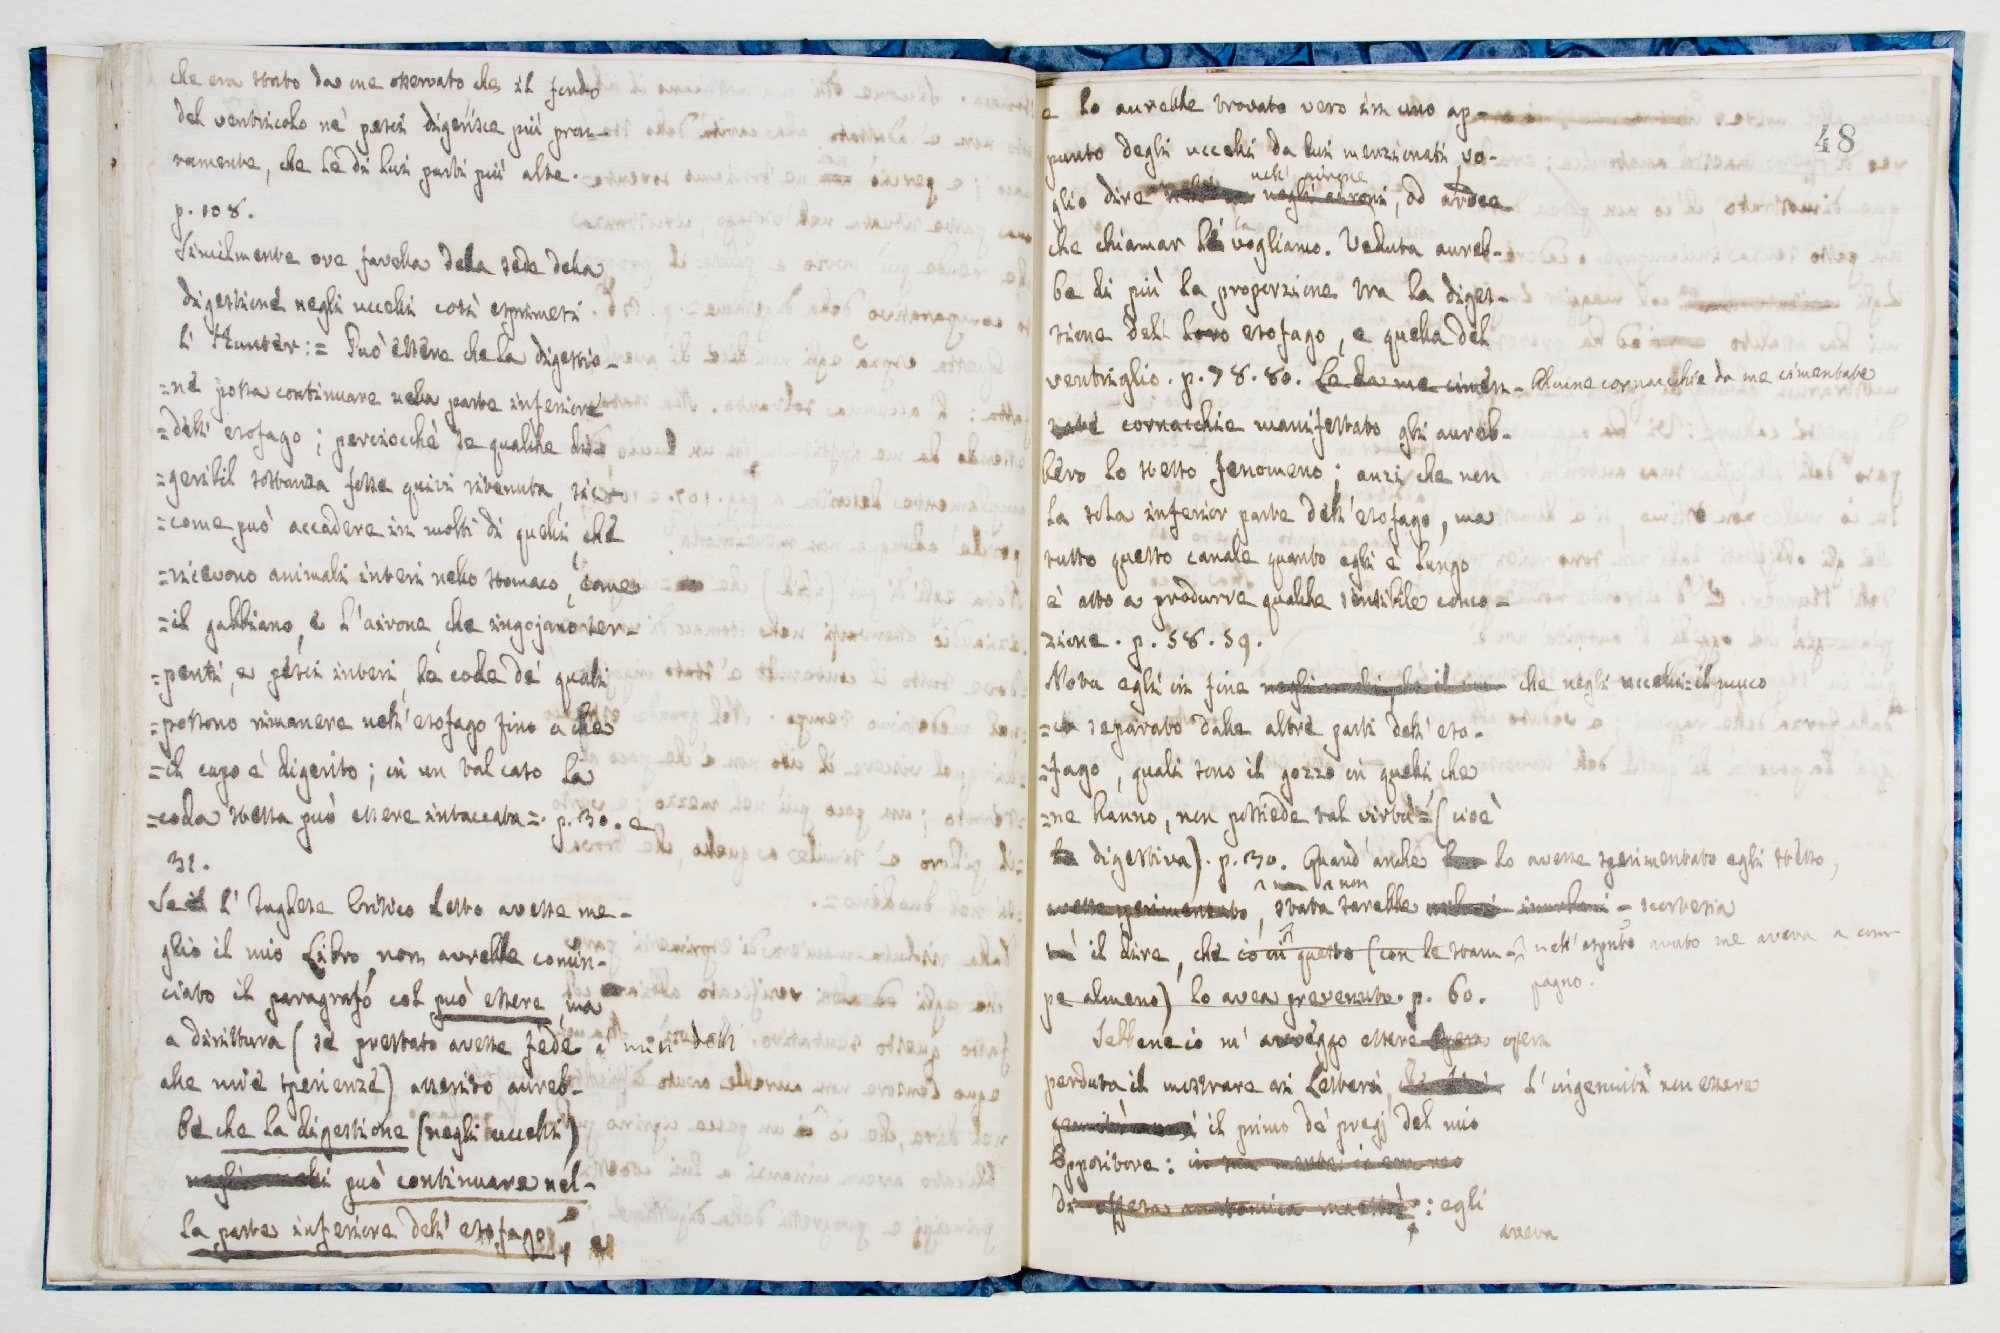 che era stato da me osservato che il fondo
del ventricolo ne' pesci digerisce più pron-
tamente, che le di lui parti più alte.
p. 108.
Similmente ove favella della sede della
digestione negli uccelli così esprimesi
l' Hunter: = Può essere che la digestio-
=ne possa continuare nella parte inferiore
=dell' esofago; perciocchè se qualche di-
=geribil sostanza fosse quivi ritenuta, sic-
=come può accadere in molti di quelli, che
=ricevono animali interi nello stomaco, come
=il gabbiano, e l'airone, che ingojano ser-
=penti, e pesci interi, le code de' quali
=possono rimanere nell' esofago fino a che
=il capo è digerito; in un tal caso la
=coda stessa può essere intaccata=. p. 30. e
31.
Se il l' Inglese Critico letto avesse me-
glio il mio Libro, non avrebbe comin-
ciato il paragrafo col può essere, ma
a dirittura (se prestato avesse fede a' miei detti
alle mie sperienze) asserito avreb-
be che la digestione (negli uccelli)
negli uccelli può continuare nel-
la parte inferiore dell' esofago, e
48
e lo avrebbe trovato vero in uno ap-
punto degli uccelli da lui menzionati, vo-
nell' airone
glio dire negli aironi, od ardea
la
che chiamar le vogliamo. Veduta avreb-
be di più la proporzione tra la diges-
tione del loro esofago, e quella del
ventriglio. p. 78. 80. Le da me cimen- Alcune cornacchie da me cimentate
tate cornacchie manifestato gli avreb-
bero lo stesso fenomeno; anzi che non
la sola inferior parte dell' esofago, ma
tutto questo canale quanto egli è lungo
è atto a produrre qualche sensibile conco-
zione. p. 58. 59.
Nota egli in fine che negli uccelli=il muco
=co separato dalle altre parti dell' eso-
=fago, quali sono il gozzo in quelli che
=ne hanno, non possiede tal virtù=(cioè
la digestiva). p. 30. Quand' anche lo avesse sperimentato egli stesso,
non
avesse sperimentato, stata sarebbe scortesia
il dire, che io in questo (con le stam- nell' esperto avuto me aveva a com-
pagno.
pe almeno) lo avea prevenuto. p. 60.
Sebbene io m' avveggo essere opera opera
perduta il mostrare ai Lettori, l' ingenuità non essere
il primo de' pregj del mio
Oppositore: in sua mente
di anatomica : egli
aveva